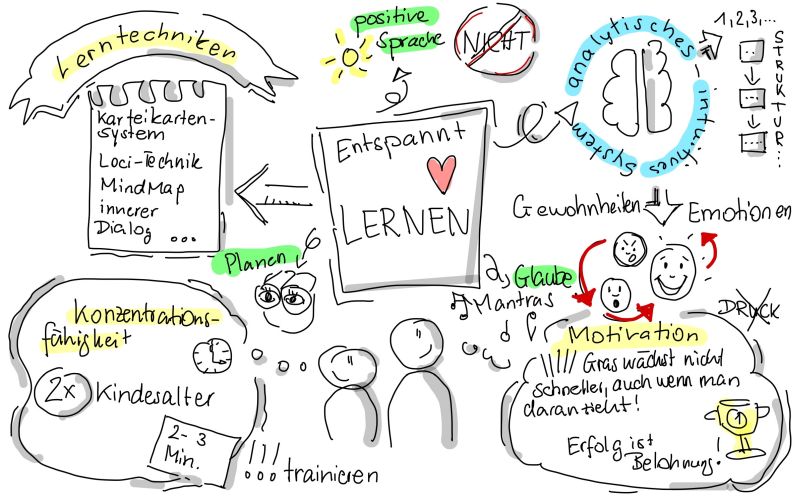 Lerntechniken
Karteikarten-
system
Loci-Technik
MindMap
innerer
Dialog ...
positive
Sprache
NICHT
Entspannt
LERNEN
analytisches
intuitives
System
1, 2, 3, ...
STRUKTUR...
Gewohnheiten
Emotionen
Planen
Glaube
Mantras
DRUCK
Konzentrations-
fähigkeit
2x Kindesalter
2-3
Min.
!!! trainieren
Motivation
!!!! Gras wächst nicht
schneller, auch wenn man
daran zieht!
1
Erfolg ist
Belohnung!